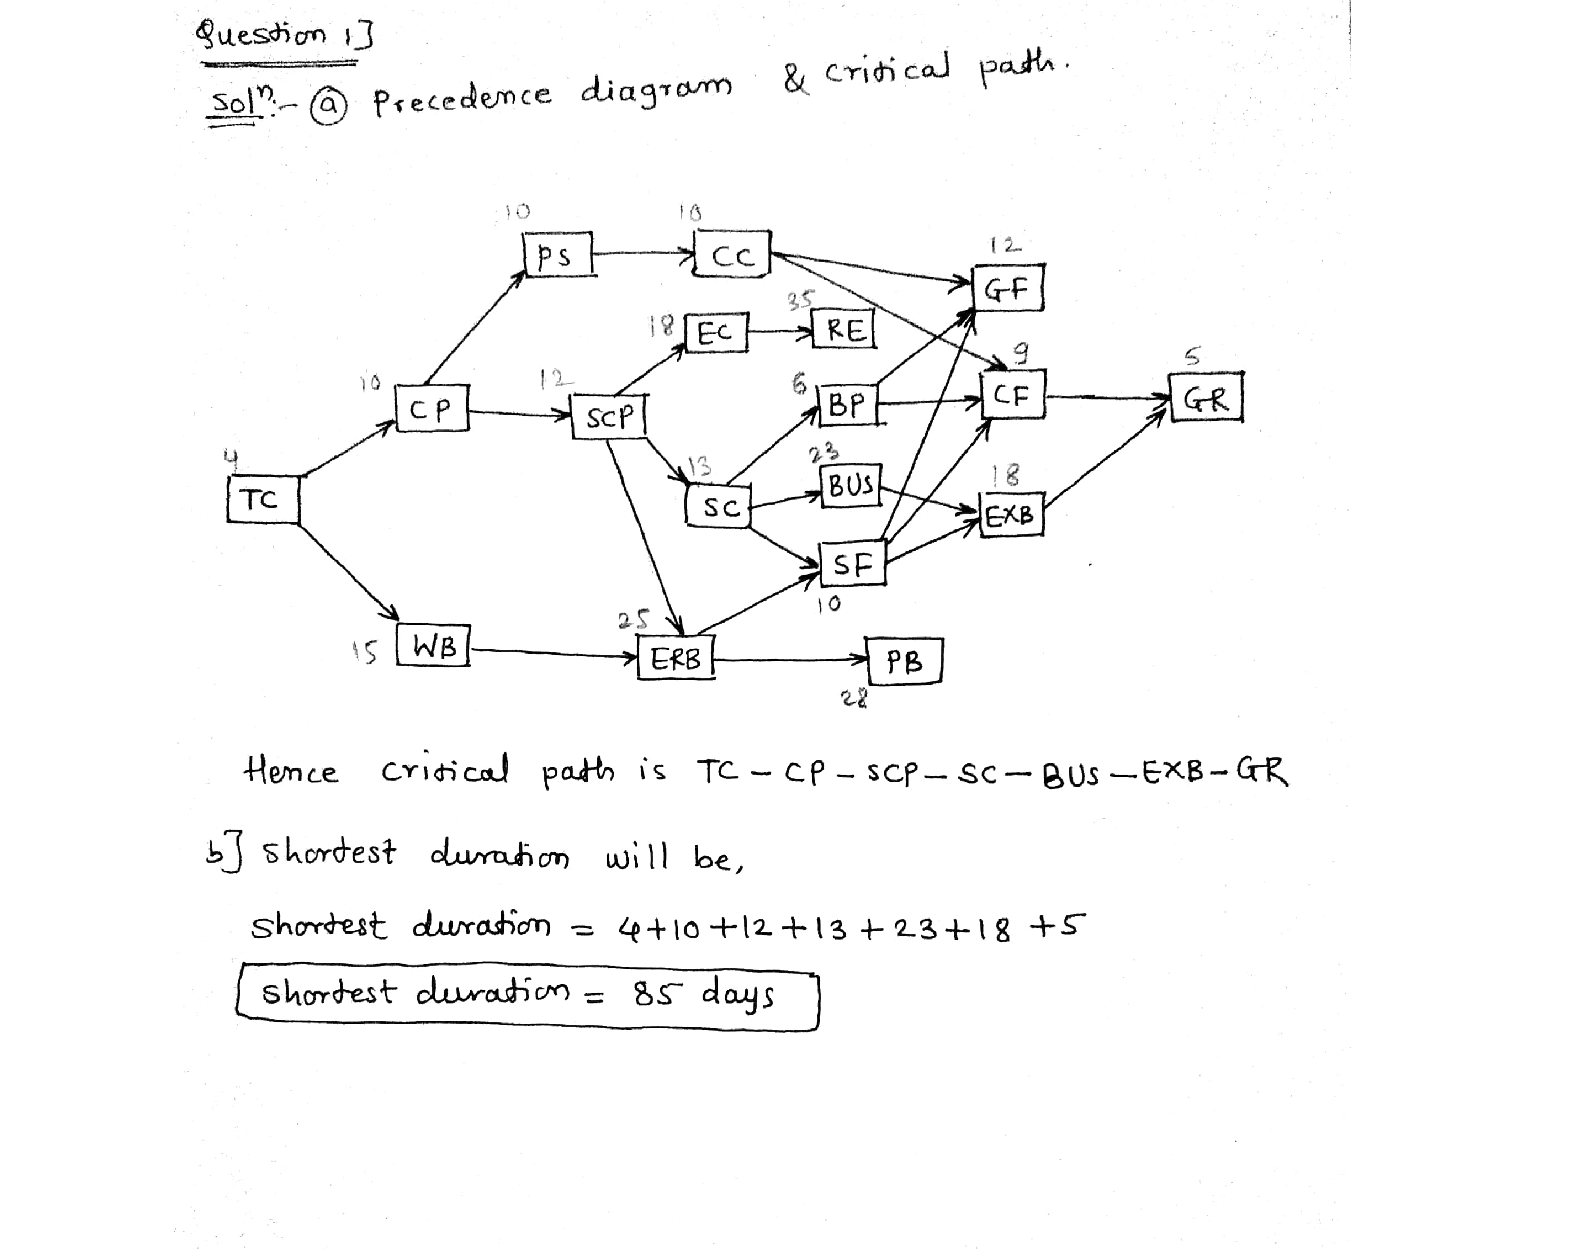 Question 1]
Solⁿ:- ⓐ Precedence diagram & critical path.
10 10
PS CC 12
GF
35
18 EC RE
9 5
10 12 6
CP SCP BP CF GR
4 13 23 18
TC SC BUS EXB
SF
25 10
15 WB ERB PB
28
Hence critical path is TC - CP - SCP - SC - BUS - EXB - GR
b] Shortest duration will be,
Shortest duration = 4+10+12+13+23+18+5
Shortest duration = 85 days